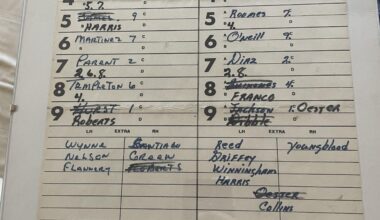 5.7.
4.
5 James 9 C 5 Roomes 9.
HARRIS D 4. D
6 MARTINEZ 7 C 6 O'Neill 7. C
D D
7 PARENT 2 C 7 DIAZ 2. C
2.6.8. D 2.8. D
8 TEMPLETON 6 C 8 4. C
4. D FRANCO D
9 HURST 1 C 9 JACKSON 1. OESTER
Roberts D Dibble
LH EXTRA RH LH EXTRA RH
WYNNE SANTIAGO Reed Youngblood
NELSON CORRIN GRIFFEY
FLANNERY ROBERTS WINNINGHAM
HARRIS
OESTER
Collins